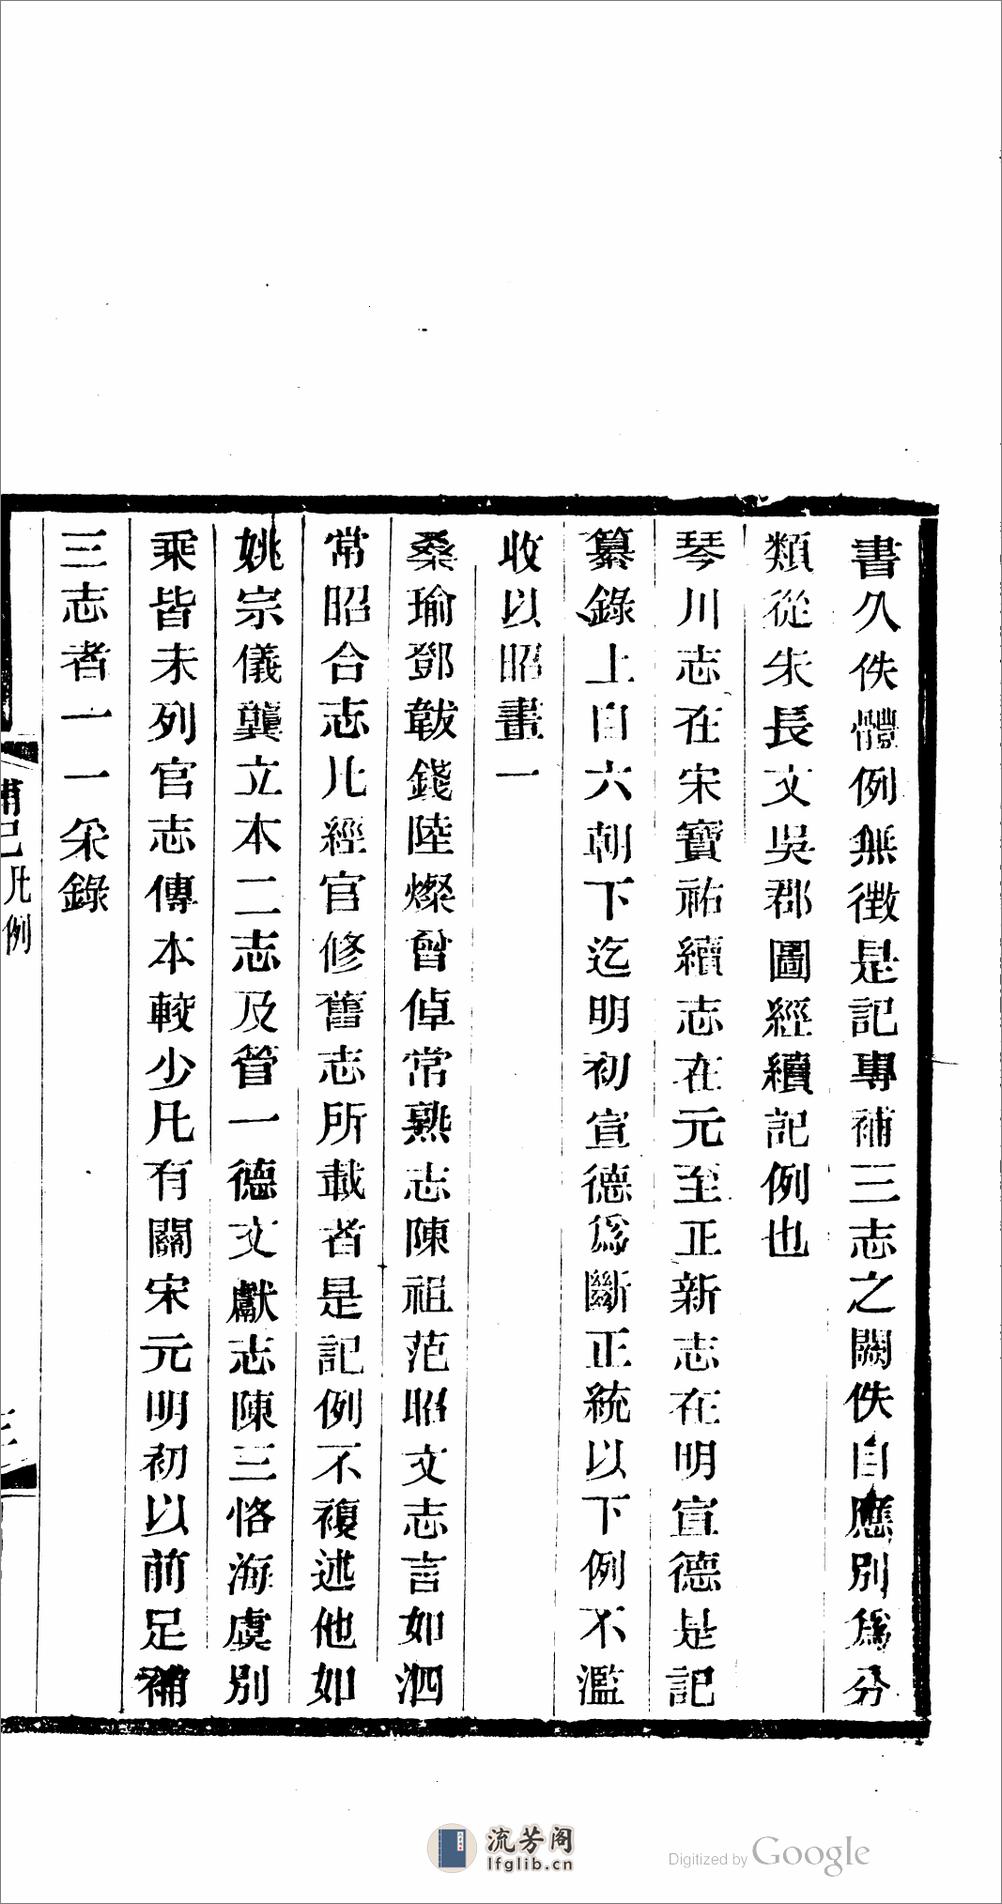 書久佚體例無徵是記專補三志之闕佚自應別爲分
類從朱長文吳郡圖經續記例也
琴川志在宋寶祐續志在元至正新志在明宣德是記
纂錄上自六朝下迄明初宣德爲斷正統以下例不濫
收以昭畫一
桑瑜鄧韍錢陸燦曾倬常熟志陳祖范昭文志言如泗
常昭合志凡經官修舊志所載者是記例不複述他如
姚宗儀龔立本二志及管一德文獻志陳三恪海虞別
乘皆未列官志傳本較少凡有關宋元明初以前足補
三志者一一采錄
凡例
流芳阁
lfglib.cn
Digitized by Google